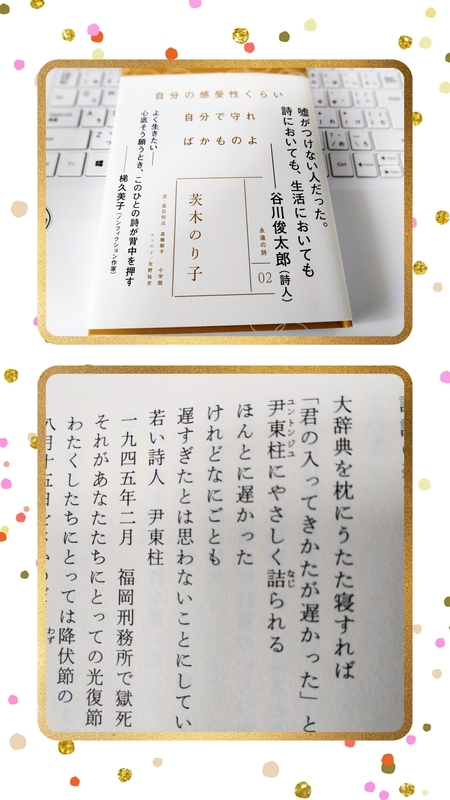 自分の感受性くらい
自分で守れ
ばかものよ
嘘がつけない人だった。
詩においても、生活においても
――谷川俊太郎(詩人)
永遠の詩
02
茨木のり子
選・鑑賞解説／高橋順子
エッセイ／天野祐吉
小学館
よく生きたい――
心底そう願うとき、このひとの詩が背中を押す
――梯久美子(ノンフィクション作家)
大辞典を枕にうたた寝すれば
「君の入ってきかたが遅かった」と
尹東柱にやさしく詰られる
ユントンジュ
なじ
ほんとに遅かった
けれどなにごとも
遅すぎたとは思わないことにしてい
若い詩人　尹東柱
一九四五年二月　福岡刑務所で獄死
それがあなたたちにとっての光復節
わたくしたちにとっては降伏節の
わず
八月十五日